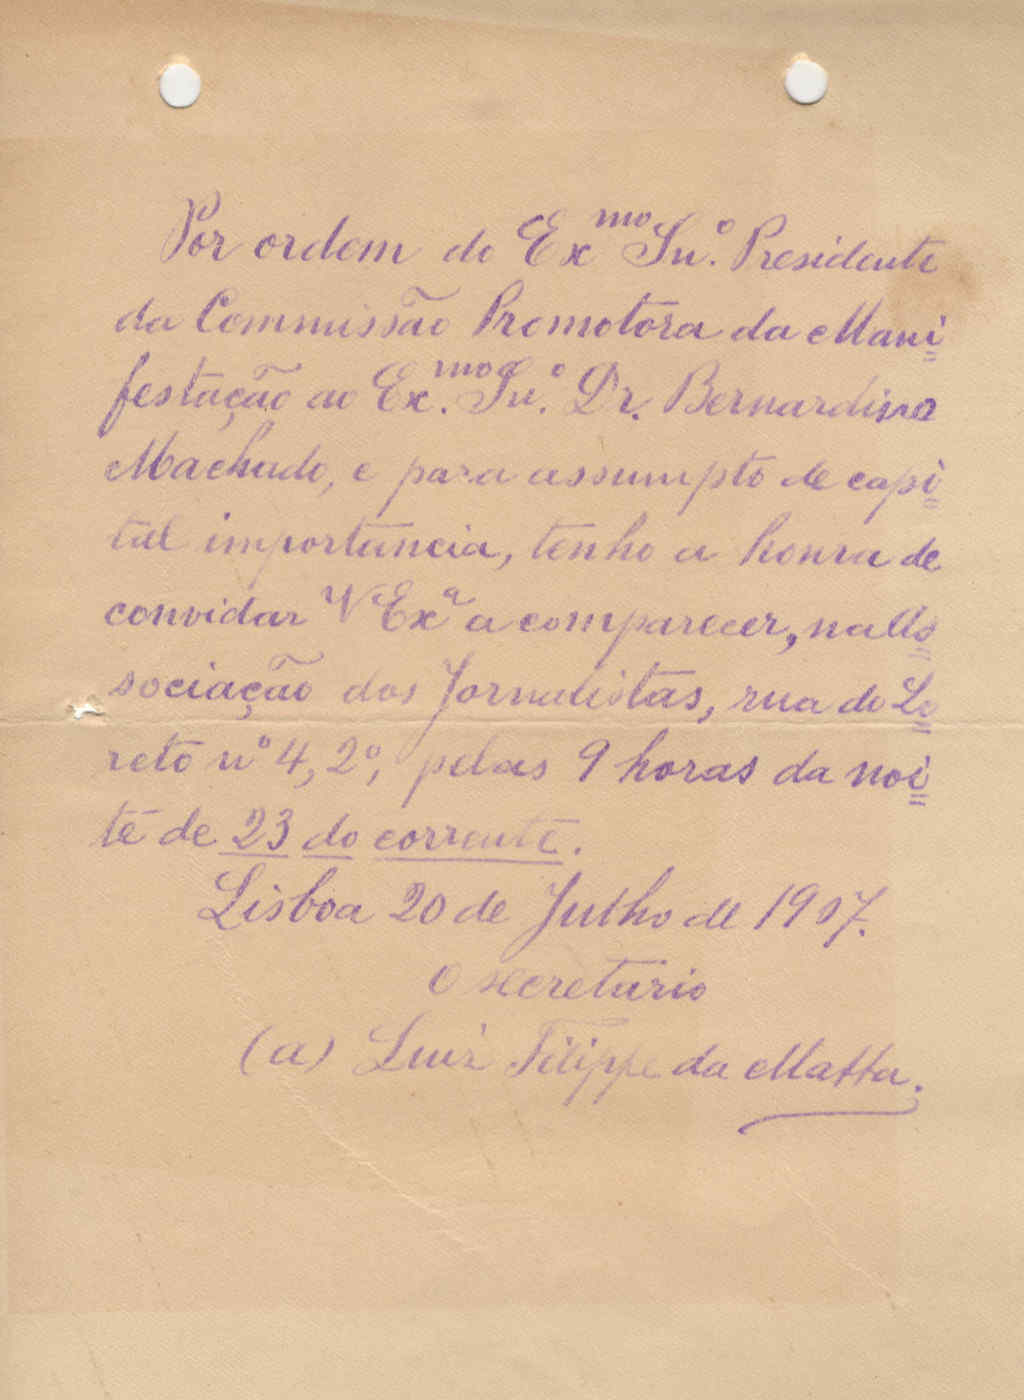 Por ordem do Exmo Snr. Presidente
da Commissão Promotora da Mani=
festação ao Ex.mo Snr. Dr. Bernardino
Machado, e para assumpto de capi=
tal importancia, tenho a honra de
convidar V Exa a comparecer, na As=
sociação dos Jornalistas, rua do Lo=
reto nº 4, 2º, pelas 9 horas da noi=
te de 23 do corrente.
Lisboa 20 de Julho de 1907.
O secretario
(a) Luiz Filippe da Matta.